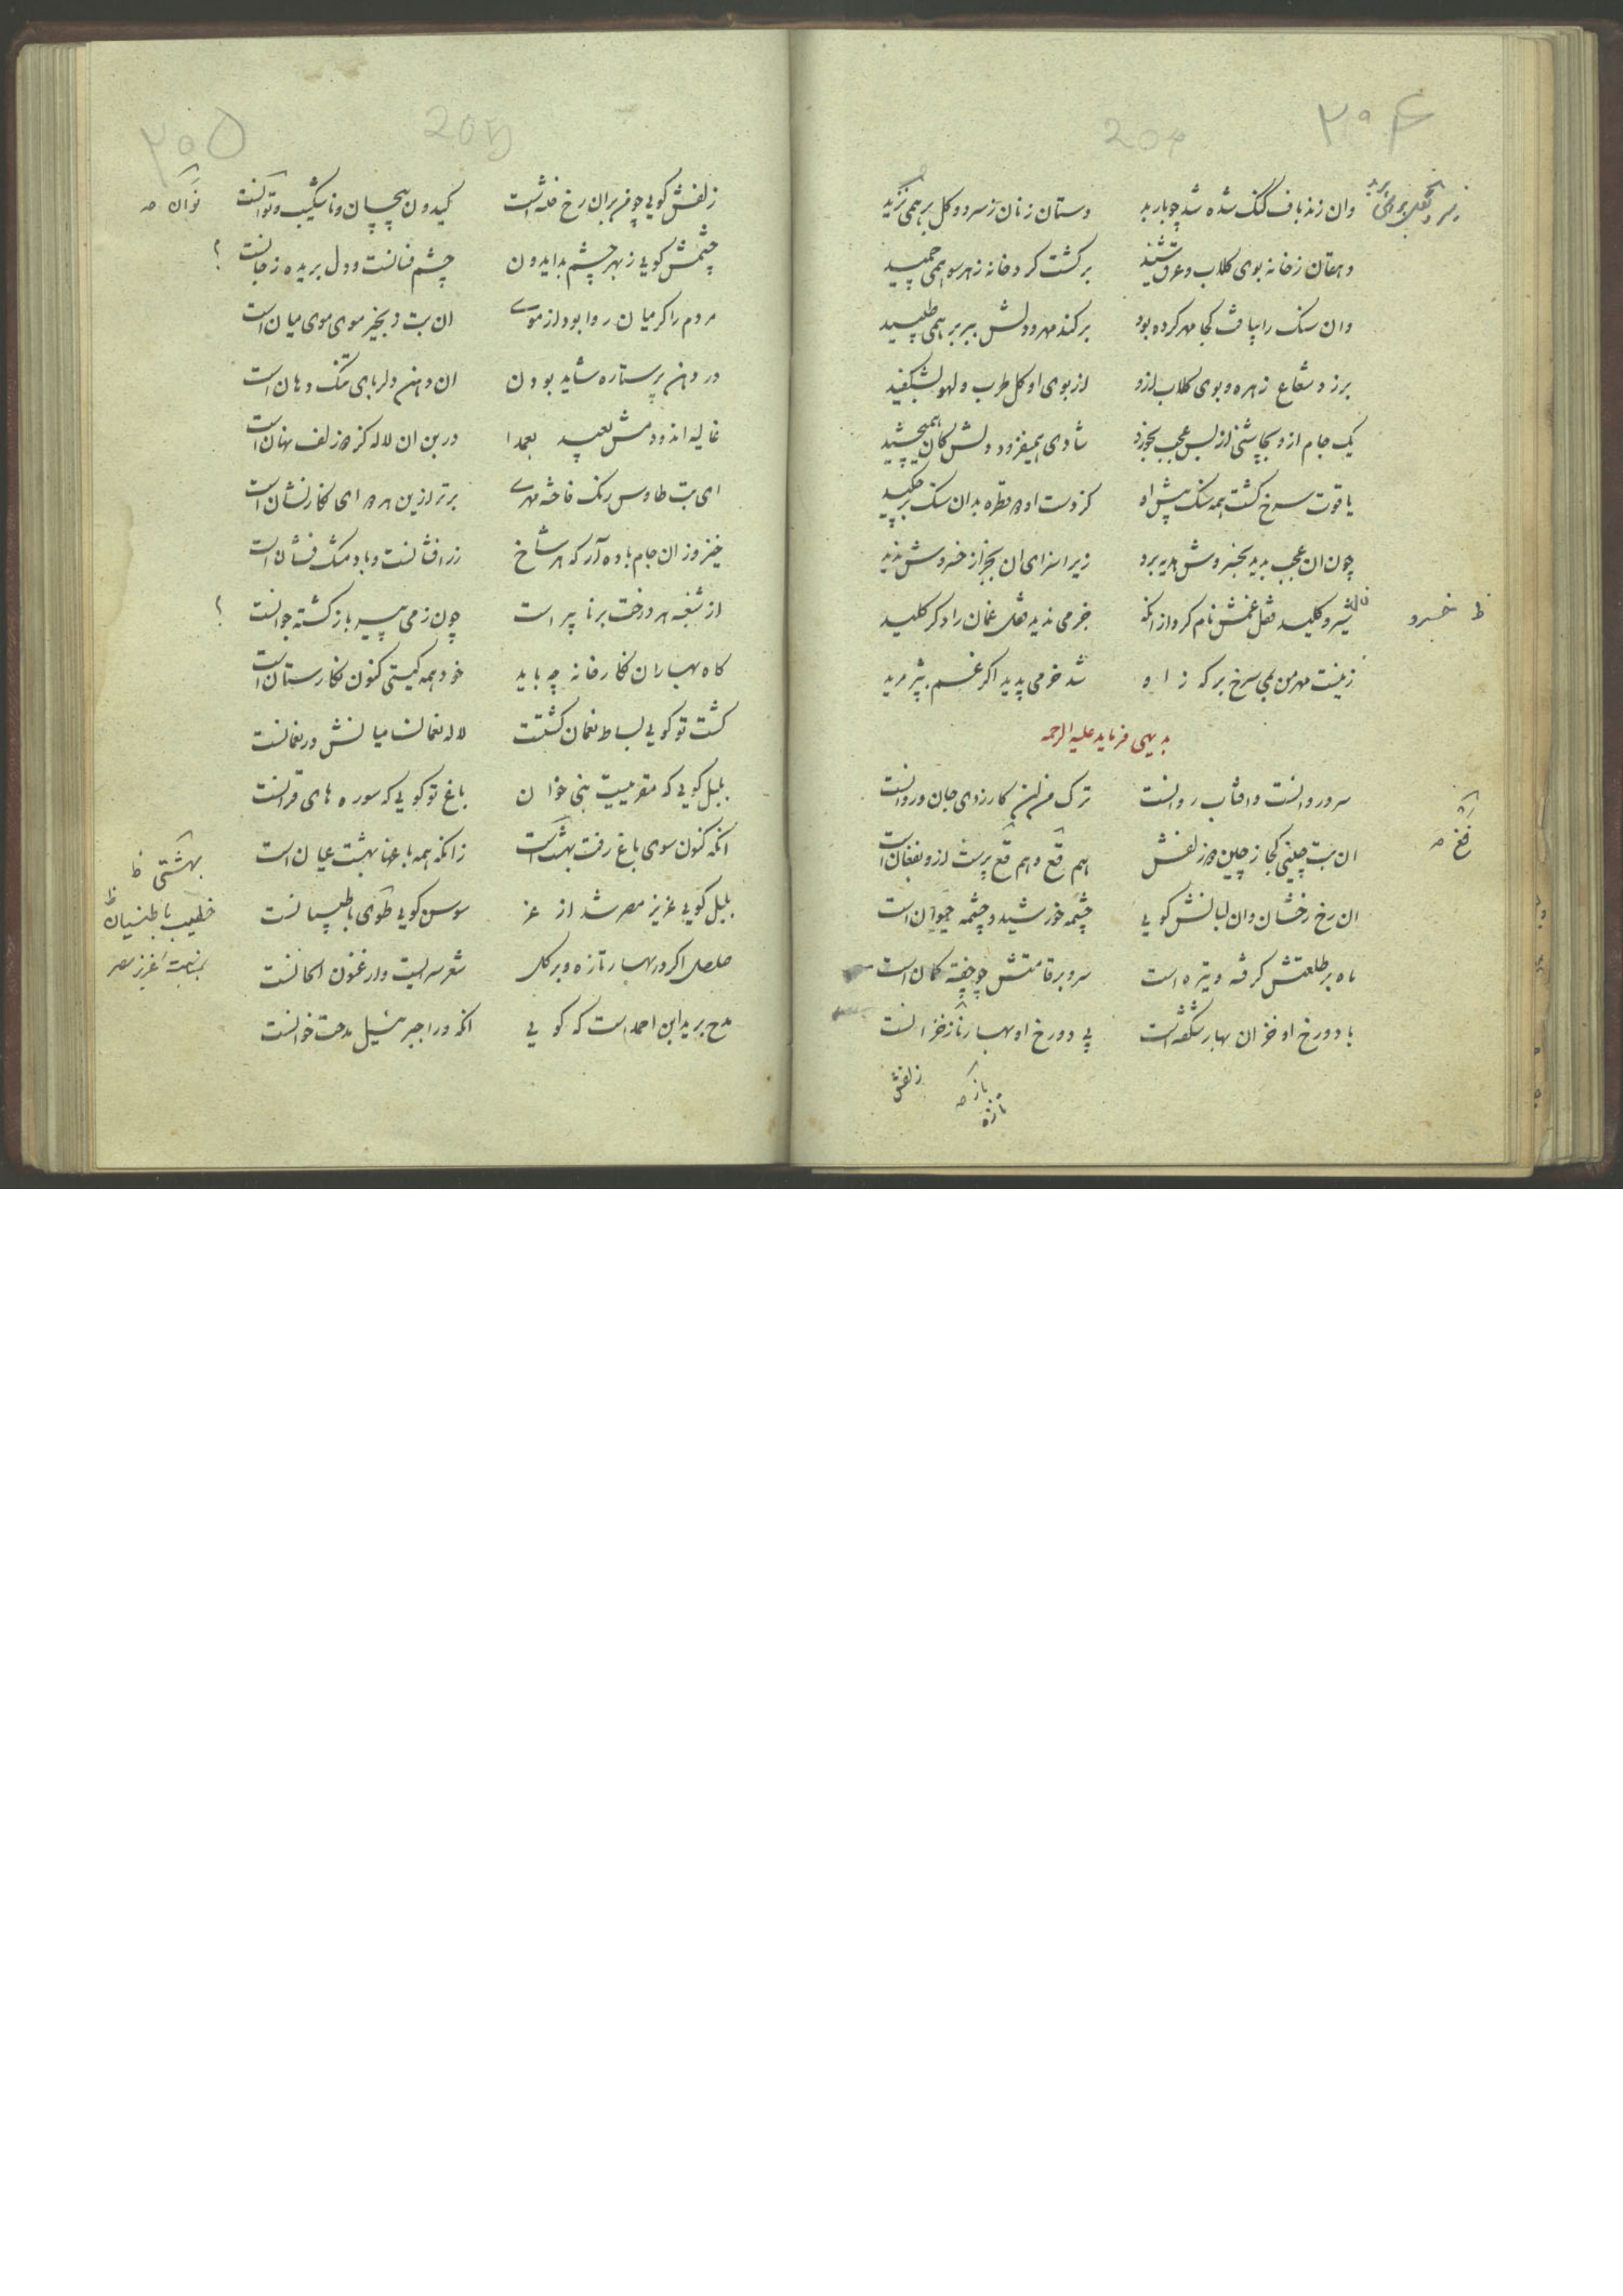 ۲۰۴
204
وان زندباف گنگ شده شد چو باربد دستان زنان ز سرو و گل بر همی
دهقان ز خانه بوی کلاب و عرق شنید برگشت گرد خانه ز هر سو همی چمید
وان سنک را بیافت کجا مهر کرده بود برکند مهر و دلش ببر بر همی طپید
برزد شعاع زهره و بوی کلاب ازو از بوی او کل طرب و لهو بشکفید
یک جام ازو بچاشنی از بس عجب بخورد شادی همیفزود و دلش کان همیچشید
یاقوت سرخ کشت همه سنک پیش او کز دست او قطره بدان سنک بر چکید
چون ان عجب بدید بخسروش هدیه برد زیرا سزای ان بجز از خسروش ندید
شیرو کلید قفل غمش نام کرد از انکه جز می ندید قفل غمان را دکر کلید
زینست مهر من بمی سرخ بر که زاو شد خرمی پدید اکر غم بپژمرید
ظ خسرو
بدیهی فرماید علیه الرحمه
سرو روانست وافتاب روانست ترک من ان کارزوی جان و روانست
ان بت چینی کجا ز چین زلفش هم فغ و هم فغ پرست ازو بفغان است
فغ صه
ان رخ رخشان وان لبانش کویی چشمه خورشید و چشمه حیوان است
ماه بر طلعتش کرفته و تیره است سرو بر قامتش چو چفته کمان است
با دو رخ او خزان بهار شکفته است بی دو رخ او بهار تازه خزانست
زلفش
باز که
تازه
۲۰۵
205
زلفش کویی چو من بران رخ فتنه است کیدون پیچان و ناشکیب و
نوان صه
چشمش کویی ز بهر چشم بد ایدون چشم فسانست و دل بریده ز جانست
؟
مردم را کر میان روا بود از موی ان بت دبیخیر موی موی میان است
در دهن پرستاره شاید بودن ان دهن دلربای تنک دهان است
غالیه اندود مش بعمدا در بن ان لاله کز زلف نهان است
ای بت طاوس رنک فاخته مهری برتر ازین مهر ای نکار نشان است
خیز و زان جام باده آر که هر شاخ زرافشانست و باد مشک فشان است
از هر درخت برنا پیر است چون زمی پیر باز کشته جوانست
؟
کاه بهاران نکارخانه چه باید خود همه کیتی کنون نکارستان است
کشت تو کویی بساط نعمان کشتست لاله نعمان میانش در نعمانست
بلبل کویی که مقریست نبی خوان باغ تو کویی که سوره های قرانست
انکه کنون سوی باغ رفت بهشت است زانکه همه باغها بهشت عیان است
بهشتی ظ
بلبل کویی عزیز مصر شد از عز سوسن کویی طوی با طیلسانست
خطیب با طیلسان ظ
بمناسبت عزیز مصر
صلصل اکر در بهار تازه و بر کل شعر سرایست و ارغنون الحانست
مدح برید ابن احمد است که کویی انکه ورا جبرئیل مدحت خوانست